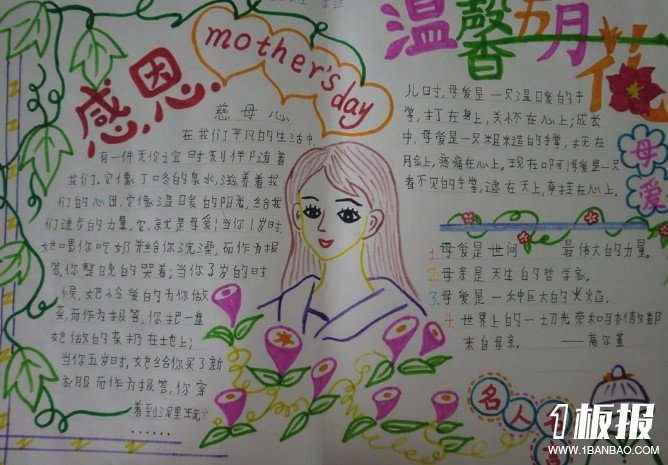 mother's day
感恩
慈母心
在我们平凡的生活中,
有一件无价之宝时刻伴随着
我们,它像丁冬的泉水,滋养着我
们的心田,它像温暖的阳光,给我
们进步的力量,它就是母爱!当你1岁时,
她喂你吃奶并给你洗澡,而作为报
答,你整晚的哭着;当你3岁的时
候,她怜爱的为你做
菜,而作为报答,你把一盘
她做的菜扔在地上;
当你五岁时,她给你买了新
衣服而作为报答,你穿
着到泥里玩
......
温馨五月花
儿时,母爱是一只温暖的手
掌,打在身上,关怀在心上;成长
中,母爱是一只粗糙的手掌,
上,疼痛在心上。现在啊,母爱是一只
看不见的手掌,遮在天上,牵挂在心上。
母爱
1.母爱是世间 最伟大的力量。
2.母亲是天生的哲学家。
3.母爱是一种巨大的火焰。
4.世界上的一切光荣和骄傲都
来自母亲。 ——高尔基
名人名言
1板报
WWW.1BANBAO.COM